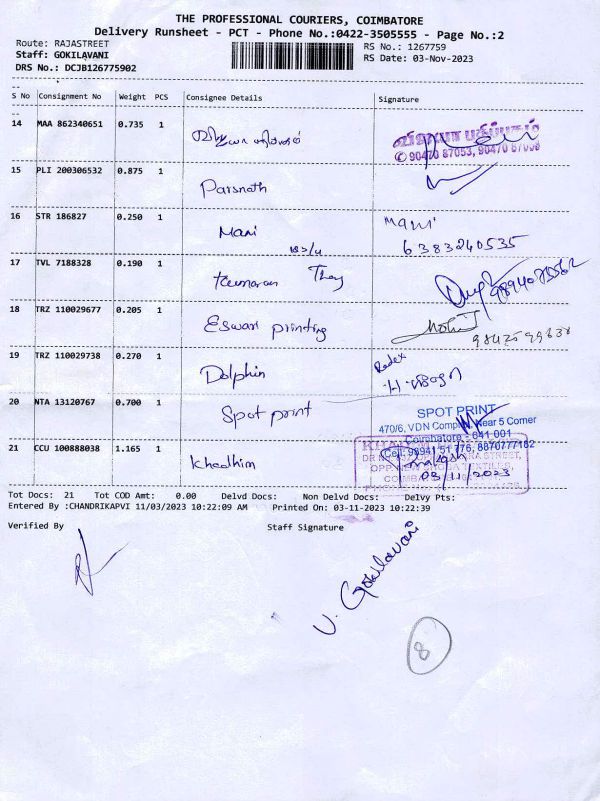 THE PROFESSIONAL COURIERS, COIMBATORE
Delivery Runsheet - PCT - Phone No.:0422-3505555 - Page No.:2
Route: RAJASTREET
RS No.: 1267759
Staff: GOKILAVANI
RS Date: 03-Nov-2023
DRS No.: DCJB126775902
S No Consignment No Weight PCS Consignee Details Signature
14 MAA 862340651 0.735 1
90470 87053, 90470 87058
15 PLI 200306532 0.875 1 Parsnath
16 STR 186827 0.250 1 Mani Mani
6383240535
17 TVL 7188328 0.190 1 Kumaran
18 TRZ 110029677 0.205 1 Eswari printing
19 TRZ 110029738 0.270 1 Dolphin Redex
20 NTA 13120767 0.700 1 Spot print
SPOT PRINT
470/6, VDN Complex, Near 5 Corner
Coimbatore - 641 001
Cell: 98941 51 776, 8870777182
21 CCU 100888038 1.165 1 Kheathim
03/11/2023
Tot Docs: 21 Tot COD Amt: 0.00 Delvd Docs: Non Delvd Docs: Delvy Pts:
Entered By :CHANDRIKAPVI 11/03/2023 10:22:09 AM Printed On: 03-11-2023 10:22:39
Verified By Staff Signature
V. Gokilavani
8